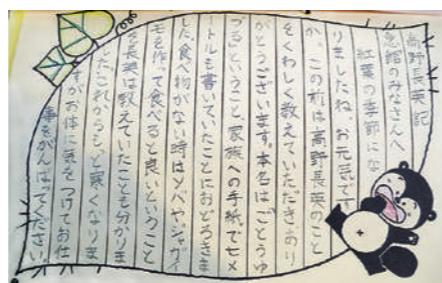 高野長英記
念館のみなさんへ
紅葉の季節にな
りましたね。お元気です
か。この前は高野長英のこと
をくわしく教えていただき、あり
がとうございます。本名はごとうゆ
づる」ということ、家族への手紙で七メ
ートルも書いていたことにおどろきま
した。食べ物がない時はソバやジャガイ
モを作って食べると良いということ
を長英は教えていたことも分かりま
した。これからもっと寒くなりま
すがお体に気をつけてお仕
事をがんばってください。